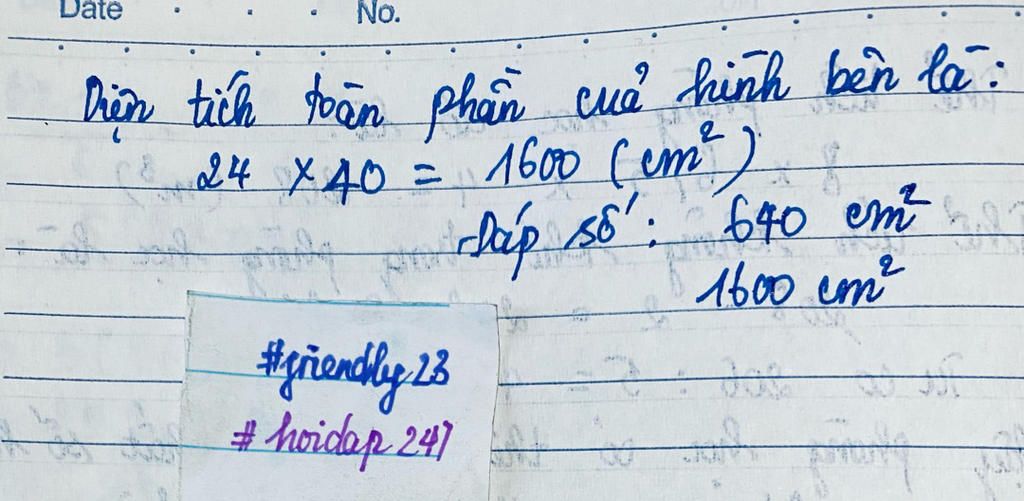 Date No.
Diện tích toàn phần của hình bên là:
24 × 40 = 1600 (cm²)
Đáp số: 640 cm²
1600 cm²
#friendly23
#hoidap247